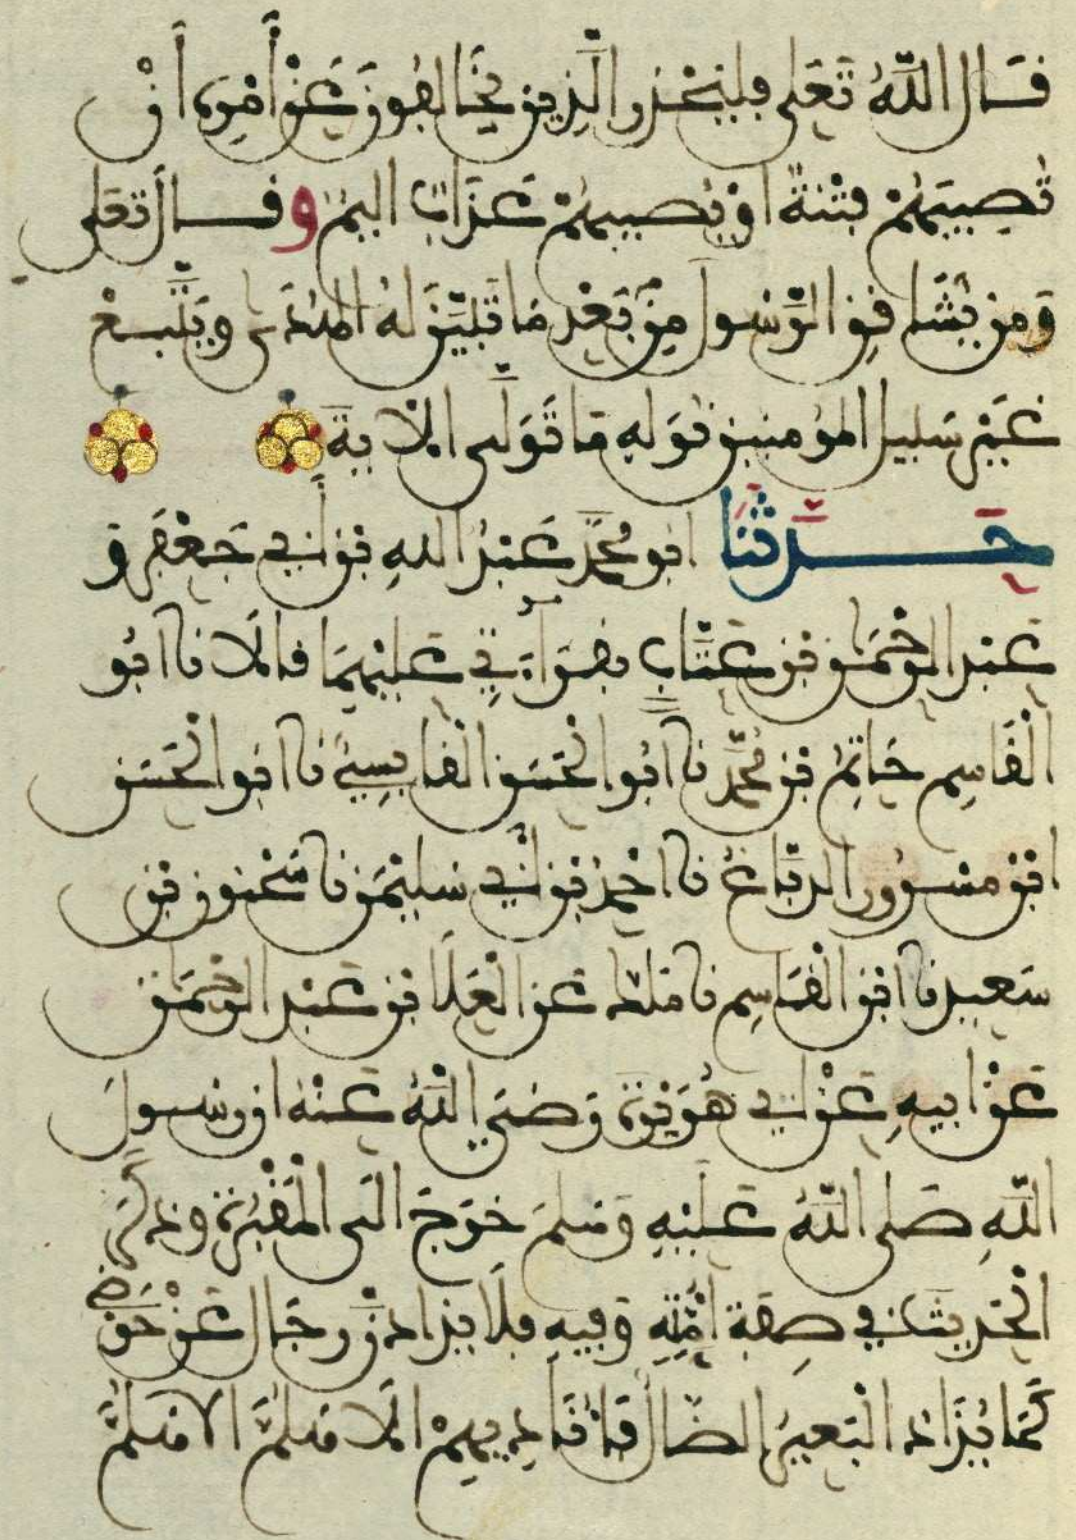 قَال اللَّهُ تَعَلى فليَحْذر الَّذِين يُخَالفُونَ عَنْ أَمْرِهِ أَنْ
تُصِيبَهُمْ فِتْنَةٌ اوْ يُصِيبهُمْ عَذَابٌ اليمٌ وقال تعَلى
وَمن يُّشَاقِقِ الرَّسُول مِنْ بَعْدِ مَا تَبَيَّنَ لهُ الهُدَى وَيَتَّبِعْ
غَيْرَ سَبيل المُؤمنين نُوَلهِ مَا تَوَلَّى الْايَةَ
حَدَّثنَا ابُو مُحَمَّد عَبْدُ اللهِ بْن أَبِي جَعْفَرٍ وَ
عَبْدُ الرَّحْمَن بْن عَتَّابٍ بقِرَاءَتِي عَليْهِمَا قالَا نا ابُو
الْقَاسِم حَاتِمُ بْن مُحَمَّد نا ابُو الْحَسَن القَابِسِيُّ نا ابُو الْحَسَن
ابْن مَسْرُور الدبَّاغُ نا احْمَدُ بْن أَبِي سُليْمَن نا سَحْنون بْن
سَعيد نا ابْن القَاسِم نا مَلك عَن الْعَلَا بْن عَبْد الرَّحْمَن
عَنْ ابيهِ عَنْ أَبي هُرَيْرَةَ رَضيَ اللَّهُ عَنْهُ ان رسُولَ
اللَّهِ صَلى اللَّهُ عَليْهِ وَسَلمَ خَرَجَ الَى الْمَقْبُرَةِ وذكَرَ
الْحَديثَ في صِفَة أُمَّتِهِ وَفيهِ فلَا يُذَادَنَّ رجَال عَنْ حَوْضِي
كَمَا يُذَادُ الْبَعيرُ الضَّالُّ فَأُنَاديهِمْ الَا هَلمَّ الا هَلمَّ